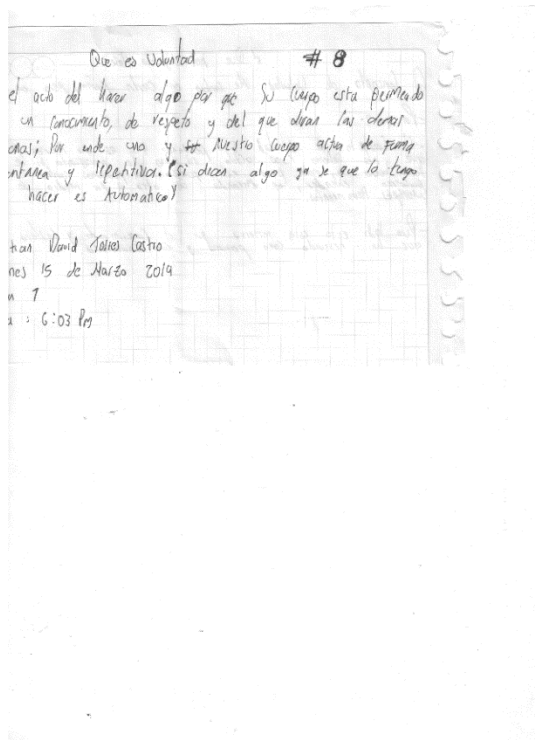 Que es Voluntad # 8
el acto del hacer algo por que Su Cuerpo esta permeado
un Conocimiento, de respeto y del que diran las demas
onas; Por ende uno y nuestro Cuerpo actua de Forma
ontanea y repetitiva. (si dicen algo ya se que lo tengo
hacer es Automatico)
tian David Torres Castro
nes 15 de Marzo 2019
n 1
a : 6:03 Pm